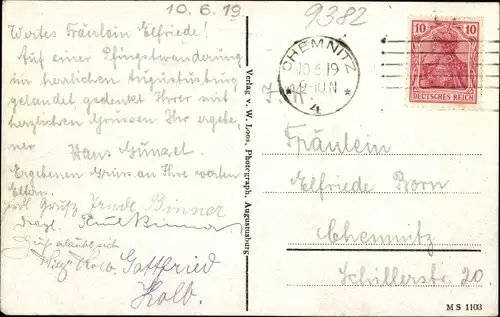 10.6.19
9382
Wertes Fräulein Elfriede!
Auf einer Pfingstwanderung
im herrlichen Augustusburg
gelandet, gedenkt Ihrer mit
herzlichen Grüssen Ihr ergebe-
ner
Hans Günzel.
Ergebenen Gruss an Ihre werten
Eltern.
Gruß Trude Binner
Paul Binner
Gottfried
Kolb.
Verlag v. W. Loos, Photograph, Augustusburg
CHEMNITZ
10.6.19
9-10 N
* 4 *
10 10
DEUTSCHES REICH
Fräulein
Elfriede Born
Chemnitz
Schillerstr. 20.
M S 1103